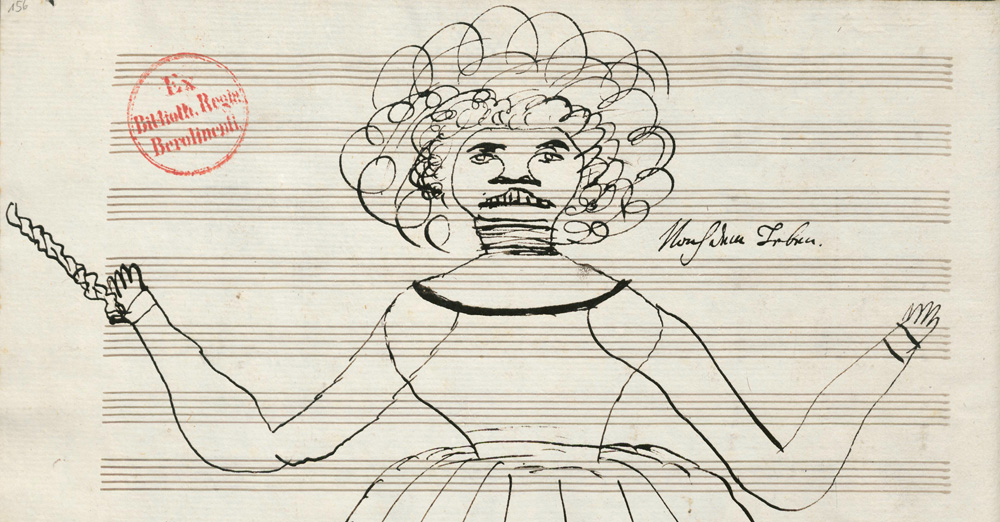 156
Ex
Biblioth. Regia
Berolinenſi.
Nach dem Leben.